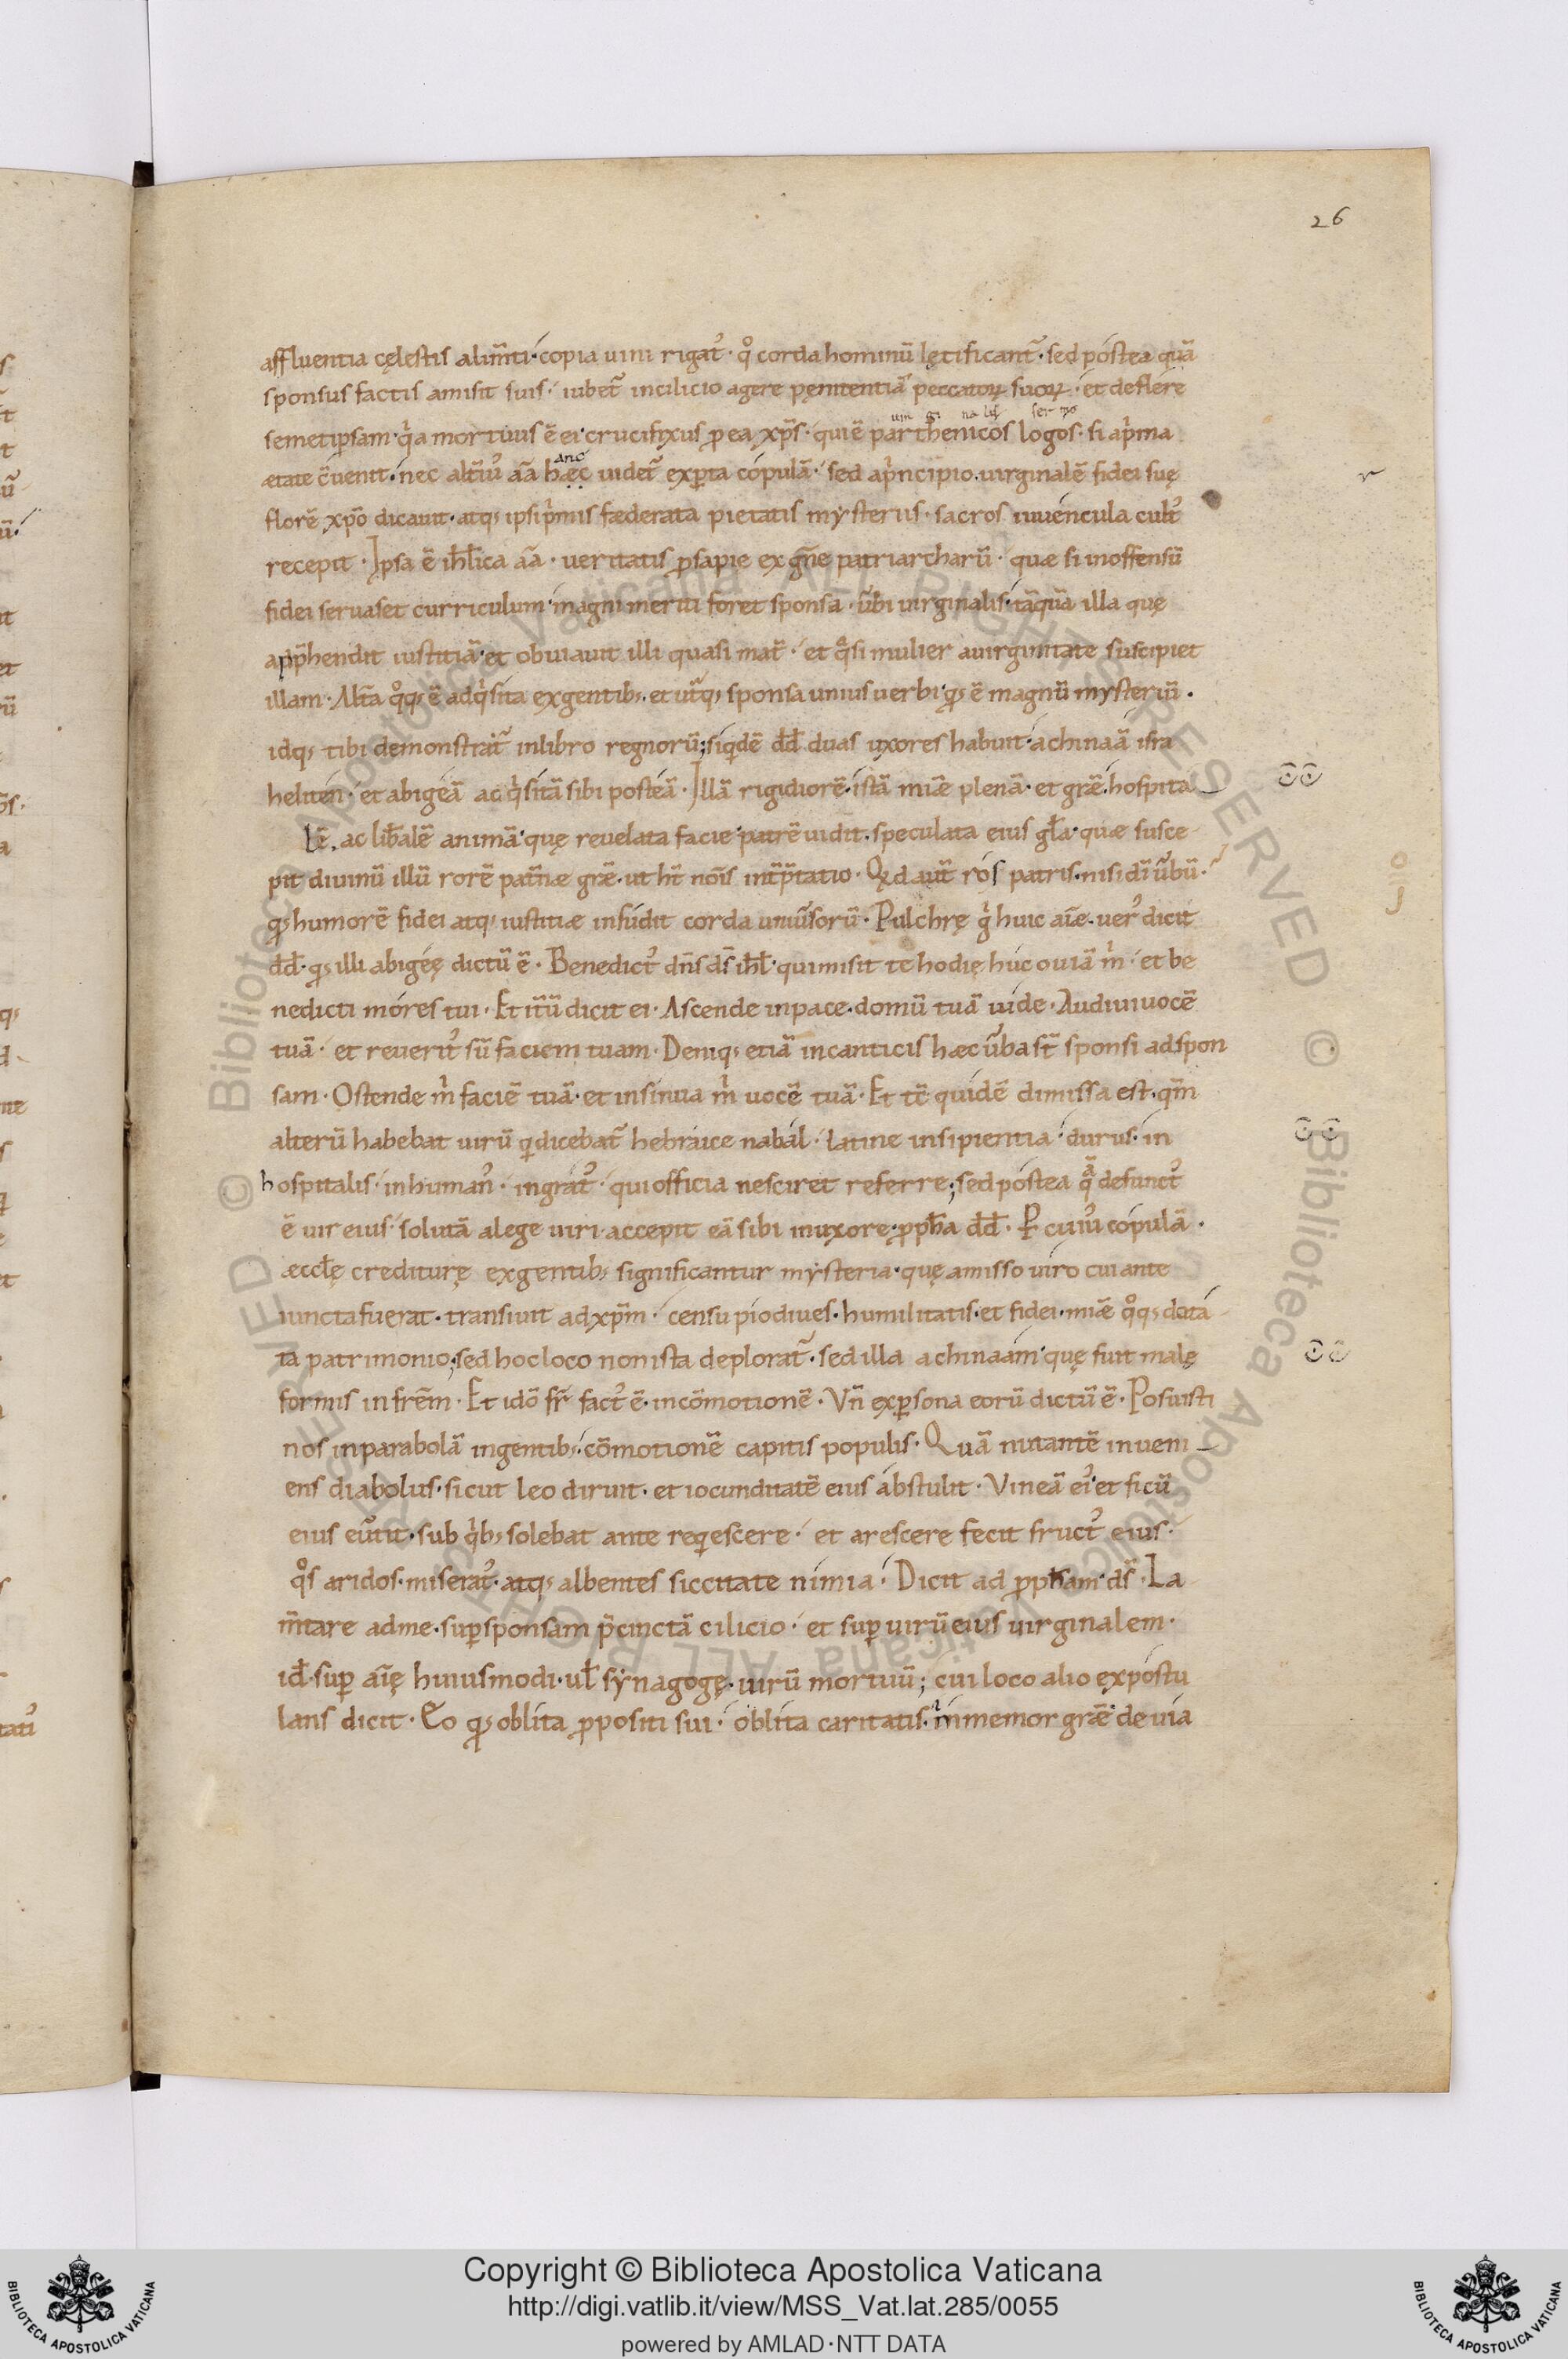 26
affluentia cęlestis alim̅ti· copia uini rigat᷒· qͦ corda hominū lętificant᷑· sed postea quā
sponsus factis amisit suis· iubet᷑ incilicio agere pęnitentiā peccatoꝝ suoꝝ· et deflere
uir gi na lis ser mo
semetipsam· qͥa mortuus ē ei· crucifixus ꝓ ea xp̄s· qui ē parthenicos logos· si ap̊ma
anc
ætate c̄uenit· nec alt̄iu᷒ aīa hæc uidet᷑ exꝑta copulā· sed apͥncipio uirginalē fidei suę
florē xp̄o dicauit· atq; ipsipͥmis fæderata pietatis mysteriis· sacros iuuencula cult᷒
recepit· Ipsa ē ih̄l̄ica aīa· ueritatis ꝓsapie ex gn̄e patriarcharū· quæ si inoffensū
fidei seruaset curriculum· magni meriti foret sponsa· ub̄i uirginalis· tāquā illa quę
app̄hendit iustitiā· et obuiauit illi quasi mat̄· et qͣsi mulier auirginitate suscipiet
illam· Alt̄a qͦq; ē adqͥsita exgentib;· et ut̄q; sponsa unius uerbi· qꝫ ē magnū mysteriū·
idq; tibi demonstrat᷑ inlibro regnorū; siqͥdē dd̄ duas uxores habuit· achinaā isra
heliten· et abigeā acqͥsitā sibi posteā· Illā rigidiorē· istā mīæ plenā· et grǣ· hospita
lē· ac lib̄alē animā· quę reuelata facie· patrē uidit· speculata eius gl̄a· quæ susce
pit diuinū illū rorē pat̄næ grǣ· ut h̄t nōīs int̄p̄tatio· Qͥd aut̄ ros patris· nisi dī ūbū·
qꝫ humorē fidei atq; iustitiæ infudit corda uniūsorū· Pulchrę gͥ huic aīæ· uer᷒ dicit
dd̄· qꝫ illi abigeę dictū ē· Benedict᷒ dn̄s ds̄ ih̄l̄· qui misit te hodię huc ouiā mͥ· et be
nedicti mores tui· Et it̄ū dicit ei· Ascende inpace· domū tuā uide· Audiui uocē
tuā· et reuerit᷒ sū faciem tuam· Deniq; etiā incanticis hæc ūba st̄ sponsi adspon
sam· Ostende mͥ faciē tuā· et insinua mͥ uocē tuā· Et tc̄ quidē dimissa est· qm̄
alterū habebat uirū qͥ dicebat᷑ hebraice nabal· latine insipientia· durus· in
hospitalis· inhuman᷒· ingrat᷒· qui officia nesciret referre; sed postea qͣ̄ defunct᷒
ē uir eius· solutā alege uiri· accepit eā sibi inuxore· ꝓph̄a dd̄· P cuiu᷒ copulā·
æccl̄ę crediturę exgentib; significantur mysteria· quę amisso uiro cui ante
iuncta fuerat· transiuit adxp̄m· censu pio diues· humilitatis· et fidei· mīæ qͦq; dota
ta patrimonio; sed hoc loco non ista deplorat᷑· sed illa achinaam· quę fuit malę
formis infrēm· Et idō fr̄ fact᷒ ē· incōmotionē· Vn̄ exꝑsona eorū dictū ē· Posuisti
nos inparabolā ingentib;· cōmotionē capitis populis· Quā nutantē inueni
ens diabolus· sicut leo diruit· et iocunditatē eius abstulit· Vineā ei᷒ et ficū
eius eūtit· sub qͥb; solebat ante reqͥescere· et arescere fecit fruct᷒ eius·
qͦs aridos· miserat᷒· atq; albentes siccitate nimia· Dicit ad ꝓph̄am· ds̄· La
m̄tare adme· suꝑ sponsam p̄cinctā cilicio· et suꝑ uirū eius uirginalem·
id̄· suꝑ aīę huiusmodi· ul̄ synagogę· uirū mortuū; cui loco alio expostu
lans dicit· Eo qꝫ oblita ꝓpositi sui· oblita caritatis· inmemor grǣ de uia
Copyright © Biblioteca Apostolica Vaticana
http://digi.vatlib.it/view/MSS_Vat.lat.285/0055
powered by AMLAD·NTT DATA